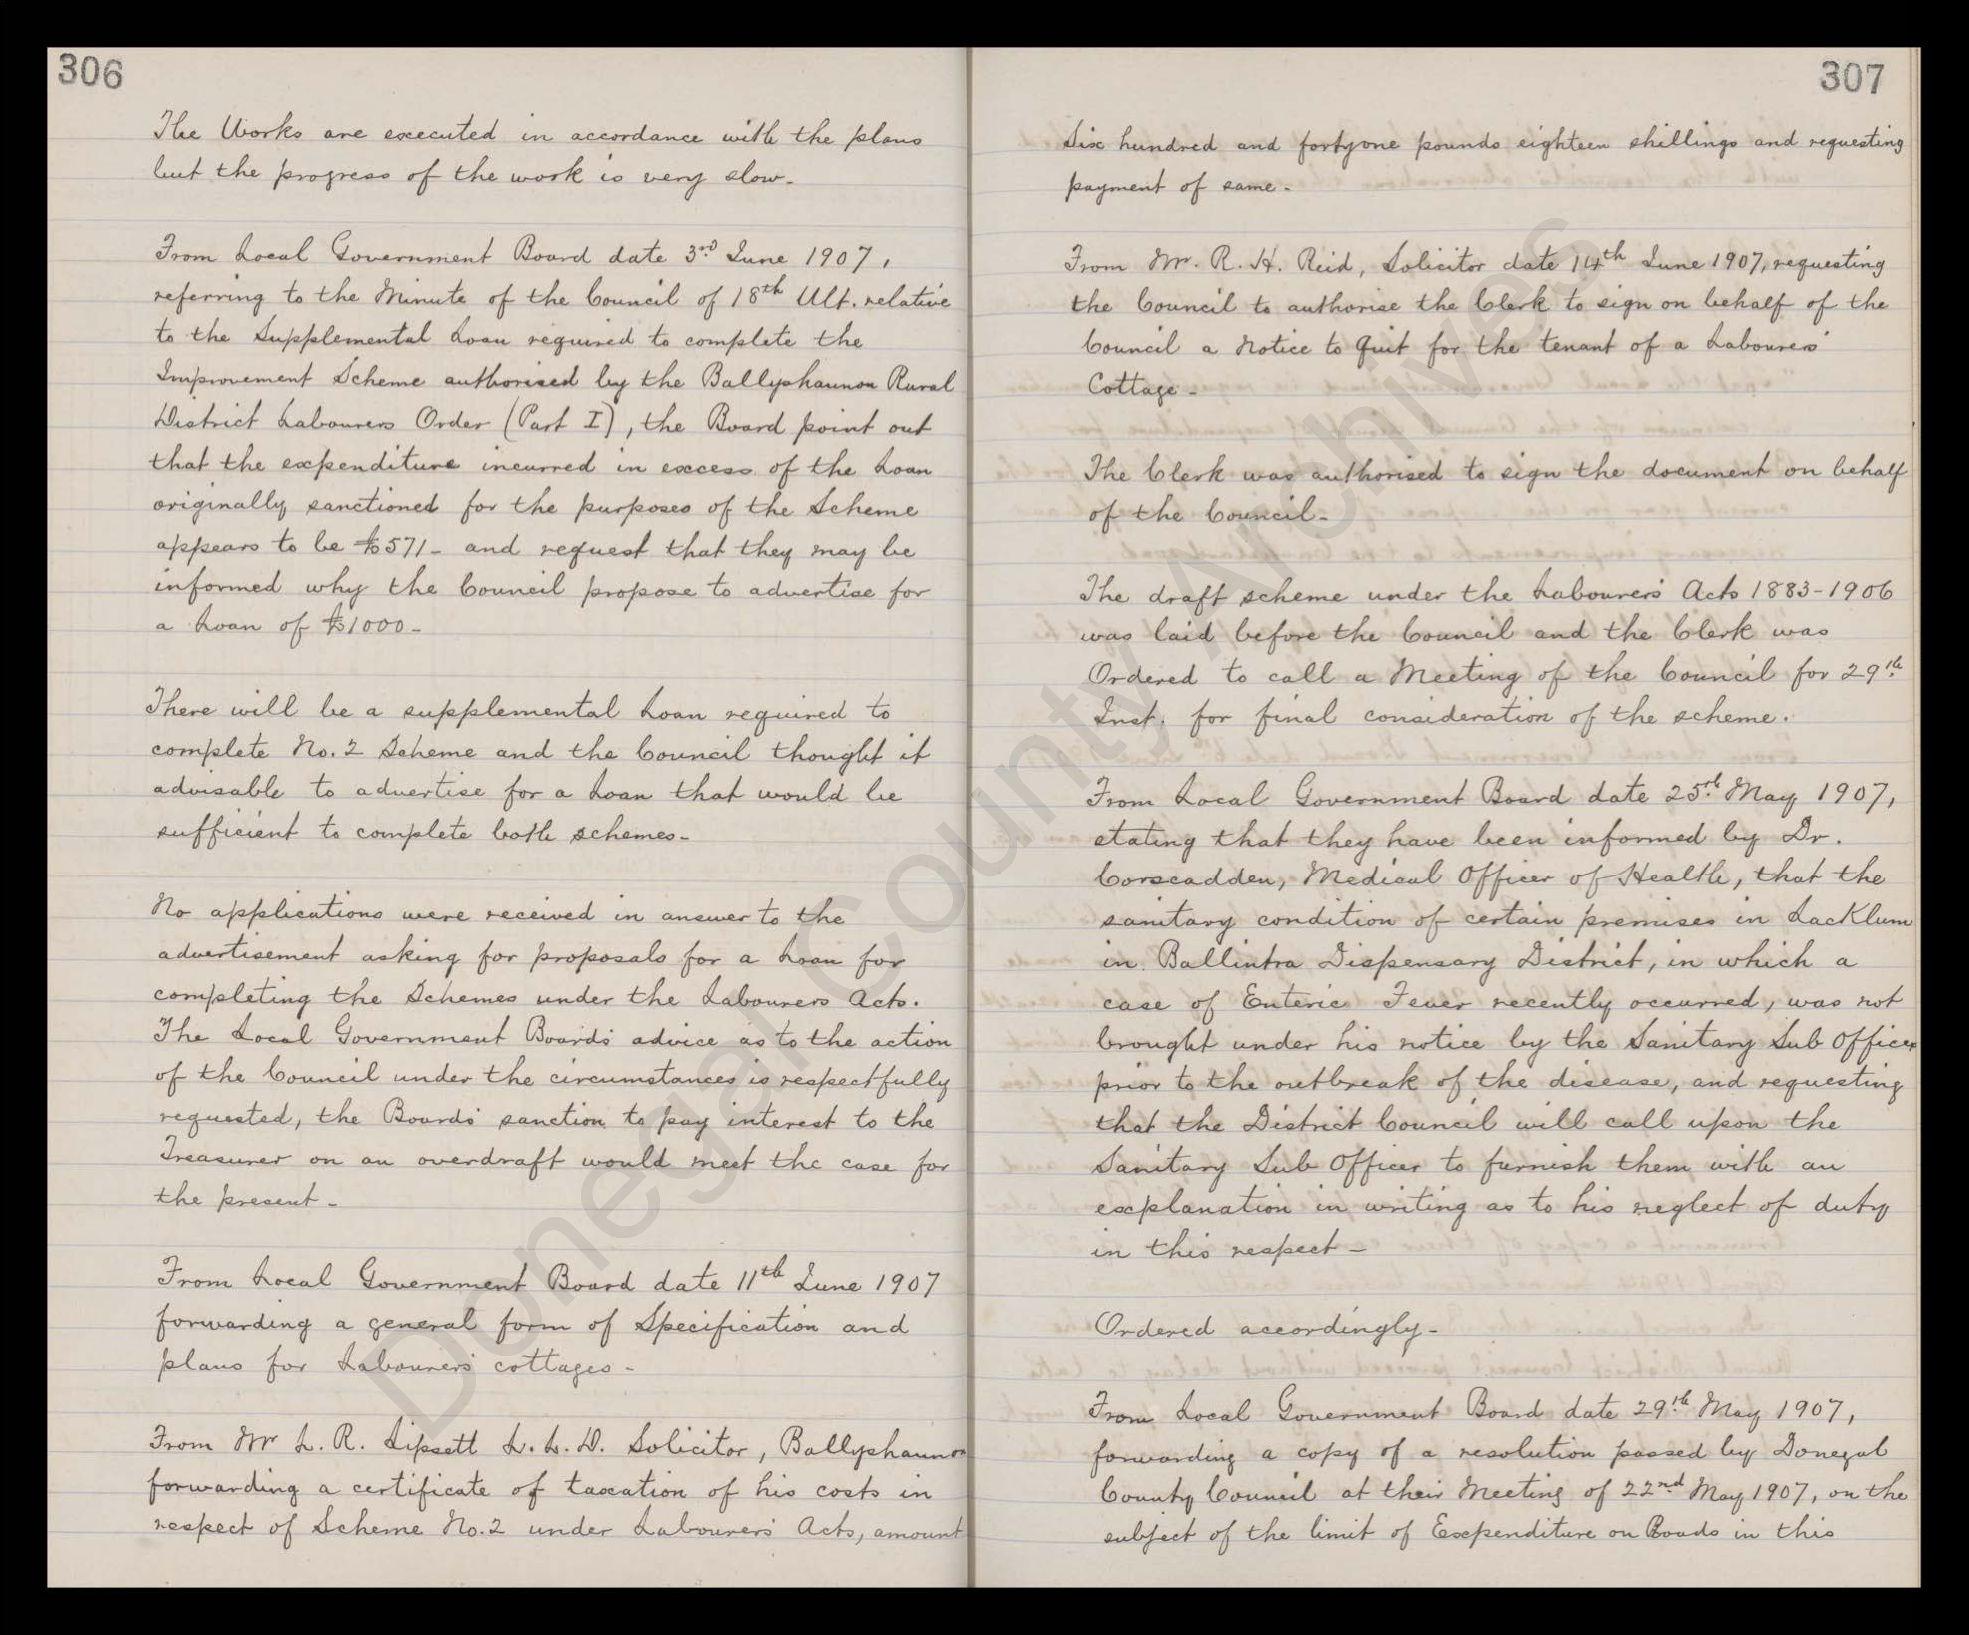 306
The Works are executed in accordance with the plans
but the progress of the work is very slow-
From Local Government Board date 3rd June 1907,
referring to the Minute of the Council of 18th Ult. relative
to the Supplemental Loan required to complete the
Improvement Scheme authorised by the Ballyshannon Rural
District Labourers Order (Part I), the Board point out
that the expenditure incurred in excess of the Loan
originally sanctioned for the purposes of the Scheme
appears to be £571- and request that they may be
informed why the Council propose to advertise for
a Loan of £1000-
There will be a supplemental Loan required to
complete No. 2 Scheme and the Council thought it
advisable to advertise for a Loan that would be
sufficient to complete both schemes-
No applications were received in answer to the
advertisement asking for proposals for a Loan for
completing the Schemes under the Labourers Acts.
The Local Government Board's advice as to the action
of the Council under the circumstances is respectfully
requested, the Boards' sanction to pay interest to the
Treasurer on an overdraft would meet the case for
the present-
From Local Government Board date 11th June 1907
forwarding a general form of Specification and
plans for Labourers' cottages-
From Mr L. R. Lipsett L.L.D. Solicitor, Ballyshannon
forwarding a certificate of taxation of his costs in
respect of Scheme No. 2 under Labourers' Acts, amount
307
Six hundred and fortyone pounds eighteen shillings and requesting
payment of same-
From Mr. R. H. Reid, Solicitor date 14th June 1907, requesting
the Council to authorise the Clerk to sign on behalf of the
Council a Notice to Quit for the tenant of a Labourers'
Cottage-
The Clerk was authorised to sign the document on behalf
of the Council-
The draft scheme under the Labourers' Acts 1883-1906
was laid before the Council and the Clerk was
Ordered to call a Meeting of the Council for 29th
Inst. for final consideration of the scheme.
From Local Government Board date 25th May 1907,
stating that they have been informed by Dr.
Corscadden, Medical Officer of Health, that the
sanitary condition of certain premises in Lacklum
in Ballintra Dispensary District, in which a
case of Enteric Fever recently occurred, was not
brought under his notice by the Sanitary Sub Officer
prior to the outbreak of the disease, and requesting
that the District Council will call upon the
Sanitary Sub Officer to furnish them with an
explanation in writing as to his neglect of duty
in this respect-
Ordered accordingly-
From Local Government Board date 29th May 1907,
forwarding a copy of a resolution passed by Donegal
County Council at their Meeting of 22nd May 1907, on the
subject of the limit of Expenditure on Roads in this
Donegal County Archives